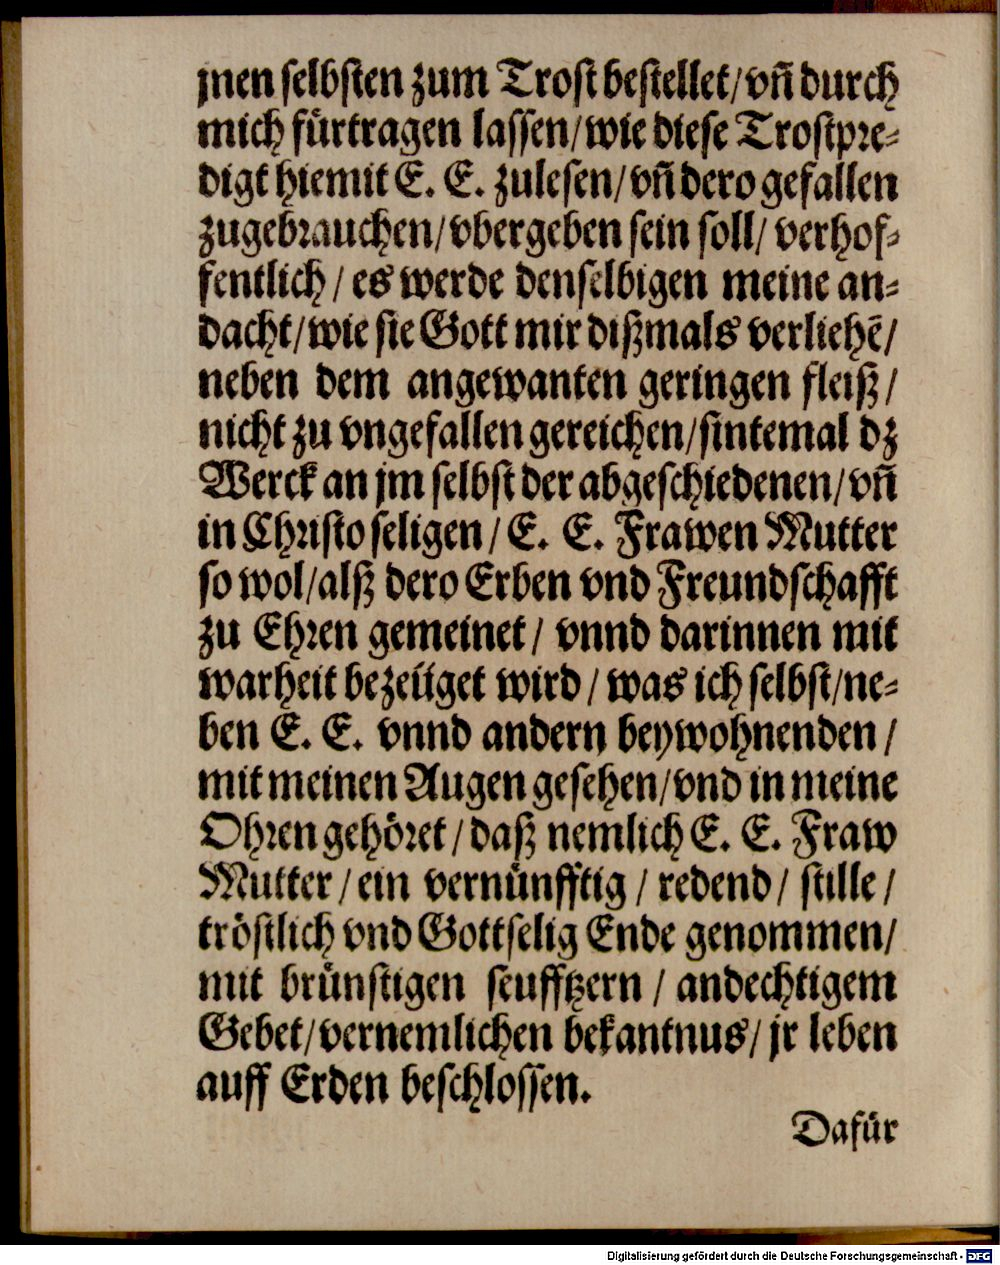 jnen selbsten zum Trost bestellet/ vn̄ durch
mich fürtragen lassen/ wie diese Trostpre⸗
digt hiemit E. E. zulesen/ vn̄ dero gefallen
zugebrauchen/ vbergeben sein soll/ verhof⸗
fentlich / es werde denselbigen meine an⸗
dacht/ wie sie Gott mir dißmals verliehē/
neben dem angewanten geringen fleiß /
nicht zu vngefallen gereichen/ sintemal dz
Werck an jm selbst der abgeschiedenen/ vn̄
in Christo seligen / E. E. Frawen Mutter
so wol/ alß dero Erben vnd Freundschafft
zu Ehren gemeinet / vnnd darinnen mit
warheit bezeüget wird / was ich selbst/ ne⸗
ben E. E. vnnd andern beywohnenden /
mit meinen Augen gesehen/ vnd in meine
Ohren gehöret / daß nemlich E. E. Fraw
Mutter / ein vernünfftig / redend / stille /
tröstlich vnd Gottselig Ende genommen/
mit brünstigen seufftzern / andechtigem
Gebet/ vernemlichen bekantnus/ jr leben
auff Erden beschlossen.
Dafür
Digitalisierung gefördert durch die Deutsche Forschungsgemeinschaft - DFG